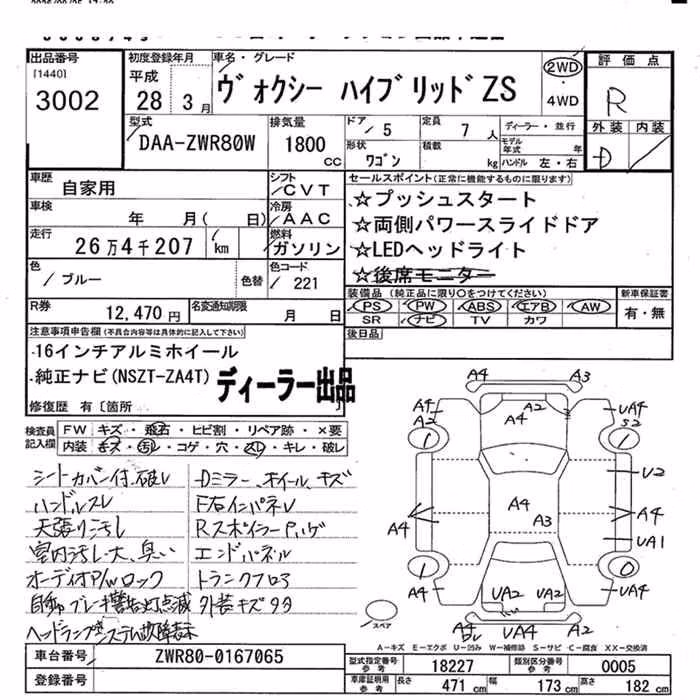 出品番号
[1440]
3002
初度登録年月
平成
28 3月
車名・グレード
ヴォクシー ハイブリッドZS
2WD
4WD
評価点
R
外装 内装
D
型式
DAA-ZWR80W
排気量
1800
cc
ドア
5
定員
7人
ディーラー・並行
形状
ワゴン
積載
kg
モデル年式 年
ハンドル 左・右
車歴
自家用
シフト
CVT
車検
年 月( 日)
冷房
AAC
走行
26万4千207 km
燃料
ガソリン
色
ブルー
色替
色コード
221
R券
12,470円
名変通知期限
月 日
セールスポイント(正常に機能するものに限ります)
☆プッシュスタート
☆両側パワースライドドア
☆LEDヘッドライト
☆後席モニター
装備品(純正品に限り○をつけてください)
PS PW ABS エアB AW
SR ナビ TV カワ
新車保証書
有・無
後日品
注意事項申告欄(不具合内容等は具体的に記入して下さい)
16インチアルミホイール
純正ナビ(NSZT-ZA4T)
ディーラー出品
修復歴 有〔箇所 〕
検査員記入欄
FW キズ・飛石・ヒビ割・リペア跡・×要
内装 キズ・汚レ・コゲ・穴・スレ・キレ・破レ
シートカバー付、破レ
ハンドルスレ
天張り汚レ
室内汚レ大、臭い
オーディオP/Wロック
自動ブレーキ警告灯点滅
ヘッドランプシステム故障表示
Dミラー、ホイールキズ
F右インパネレ
Rスポイラーハゲ
エンドパネル
トランクフロア
外装キズ多々
A4 A3
A4 A2 A4 A2 UA4 S2
U2
A4 A4 A3 A4
UA1
A4 UA2 UA2 UA4
A4 UA4 A2
スペア
A-キズ E-エクボ U-凹み W-補修跡 S-サビ C-腐食 XX-交換済
車台番号
ZWR80-0167065
登録番号
型式指定番号 参考
18227
類別区分番号 参考
0005
車庫証明用 参考
長さ 471cm
幅 173cm
高さ 182cm